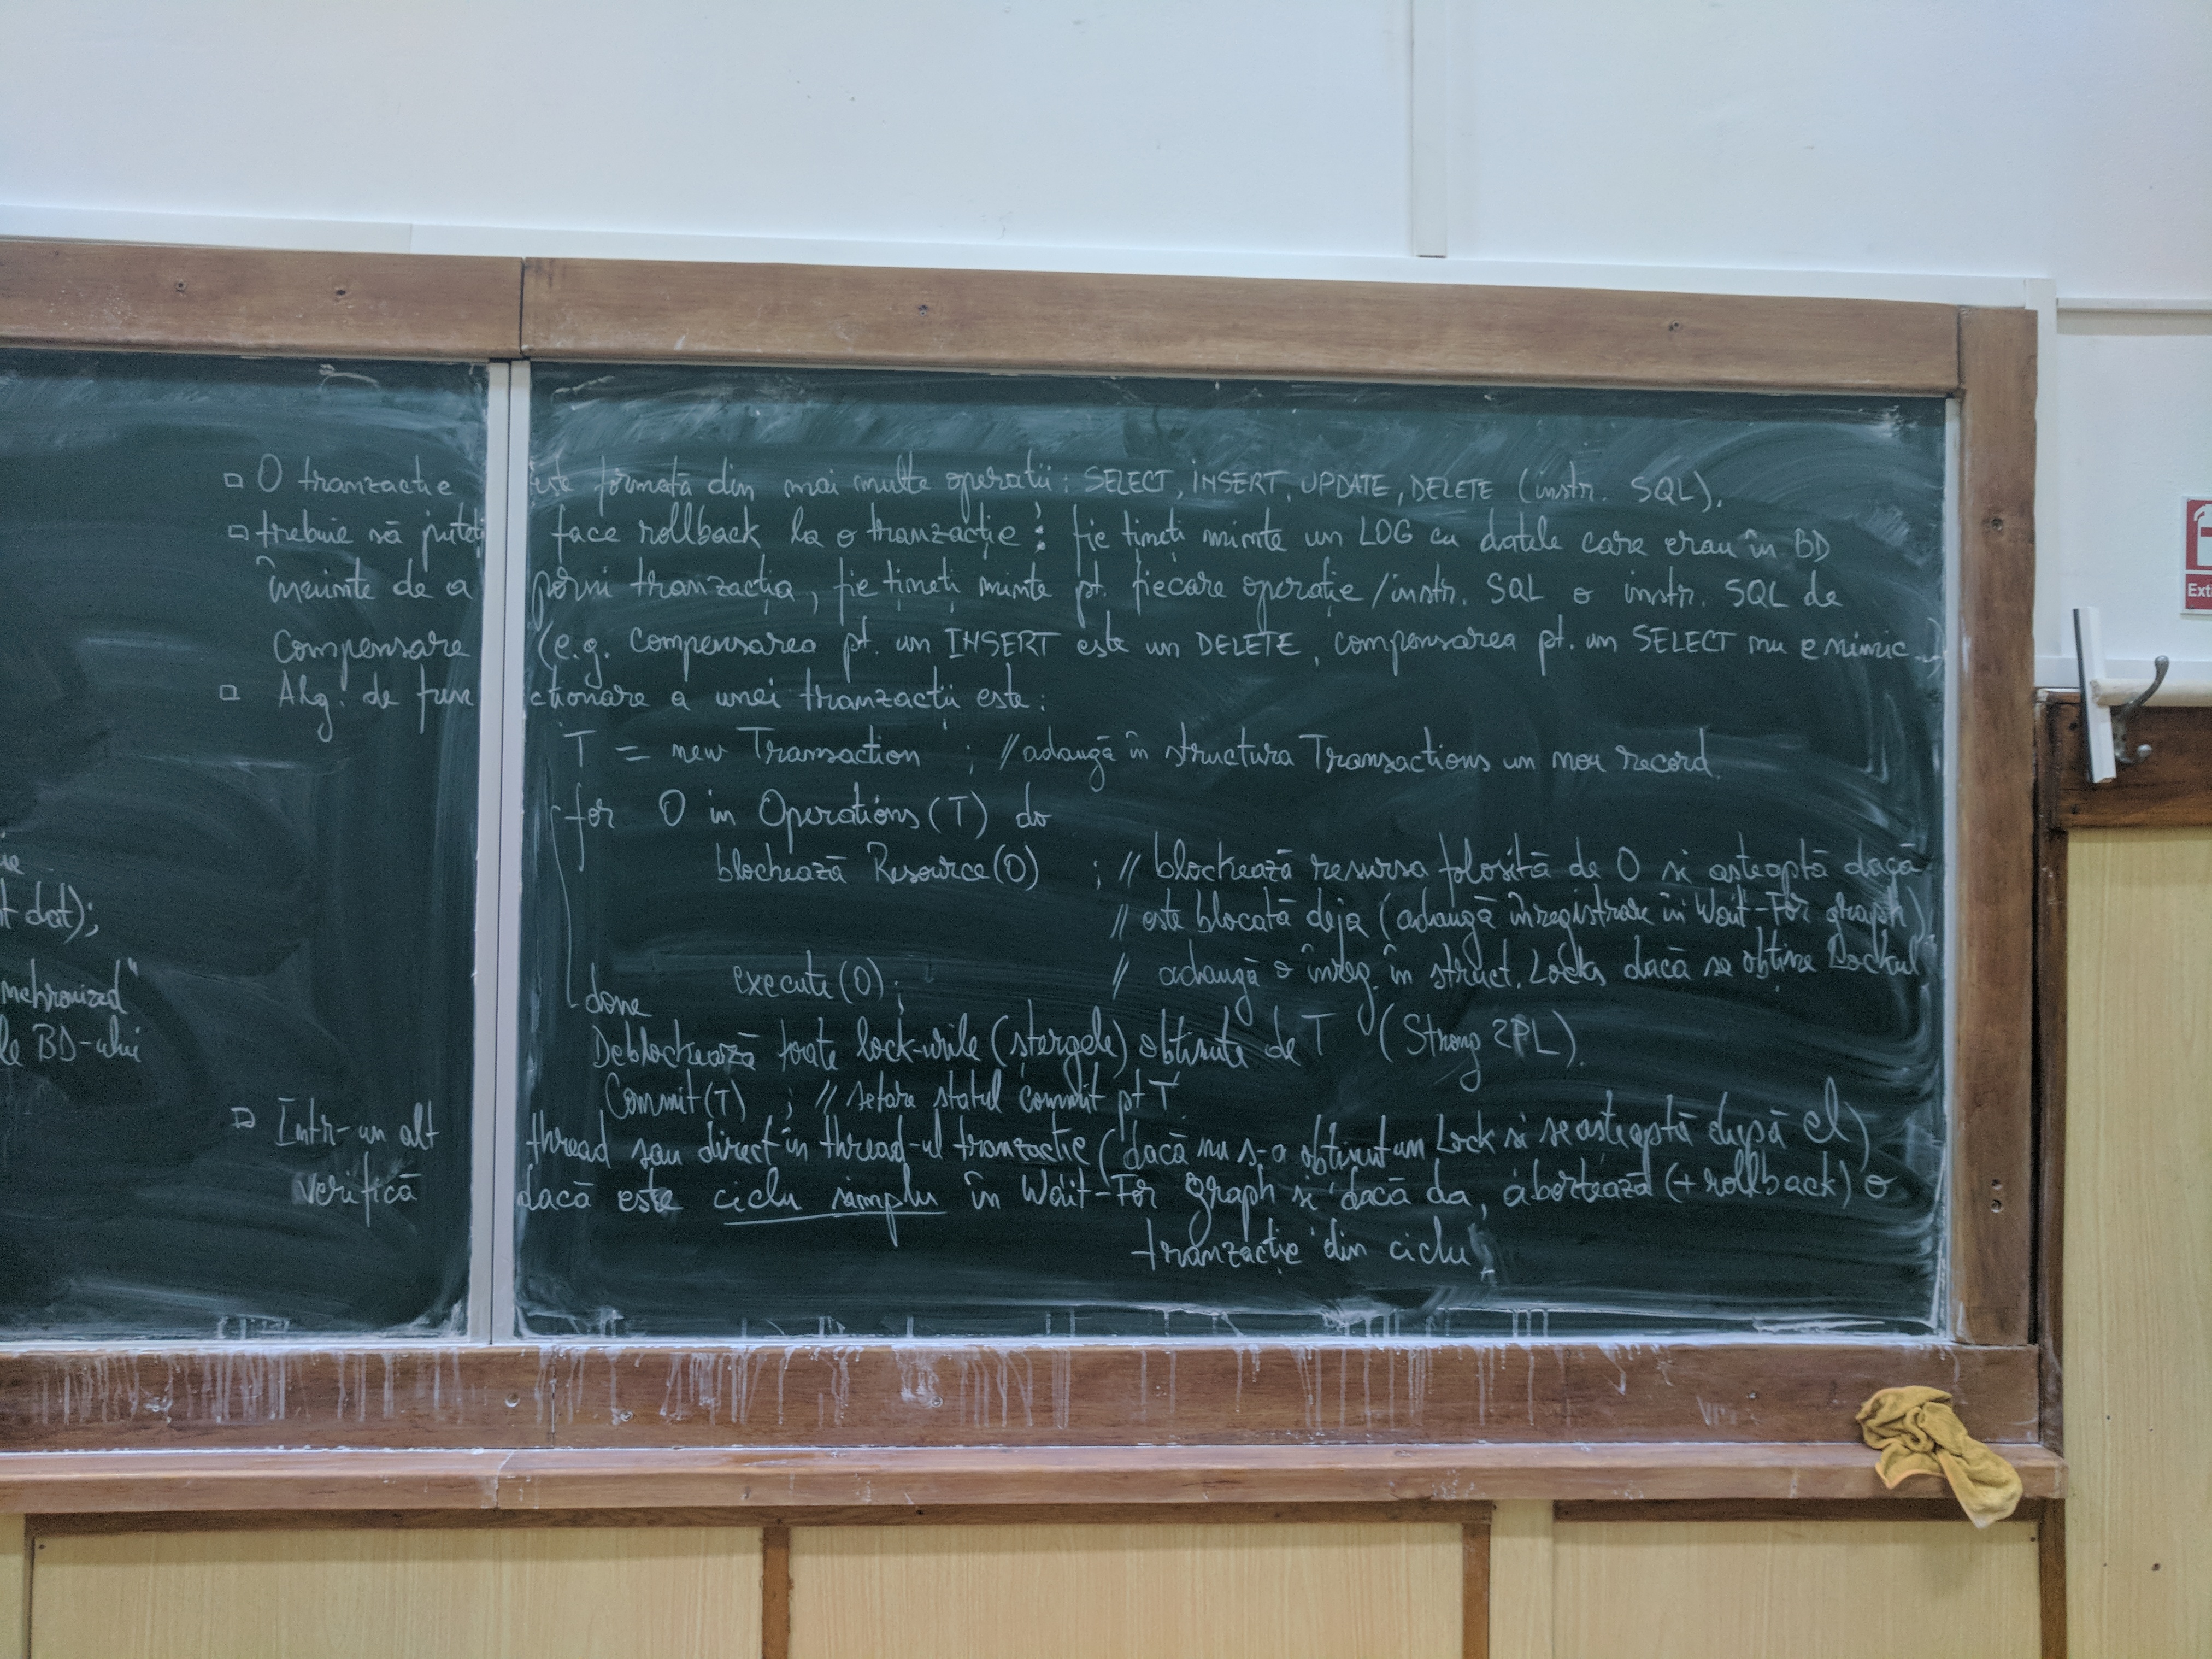 ▫ O tranzactie este formată din mai multe operatii: SELECT, INSERT, UPDATE, DELETE (instr. SQL).
▫ trebuie să puteți face rollback la o tranzacție: fie țineți minte un LOG cu datele care erau în BD
înainte de a porni tranzacția, fie țineți minte pt. fiecare operație/instr. SQL o instr. SQL de
compensare (e.g. compensarea pt. un INSERT este un DELETE, compensarea pt. un SELECT nu e nimic...)
▫ Alg. de funcționare a unei tranzacții este:
T = new Transaction ; // adaugă în structura Transactions un nou record.
for O in Operations(T) do
blochează Resource(O) ; // blochează resursa folosită de O si asteaptă dacă
// este blocată deja (adaugă înregistrare în Wait-For graph)
execute(O); // adaugă o înreg. în struct. Locks dacă se obține Lockul
done
Deblochează toate lock-urile (ștergele) obtinute de T (Strong 2PL).
Commit(T) ; // setare statul commit pt T
▫ Într-un alt thread sau direct în thread-ul tranzactie (dacă nu s-a obtinut un Lock si se așteaptă după el)
verifică dacă este ciclu simplu în Wait-For graph si dacă da, abortează (+rollback) o
tranzacție din ciclu
t dat);
nchronized"
le BD-ului
Ext